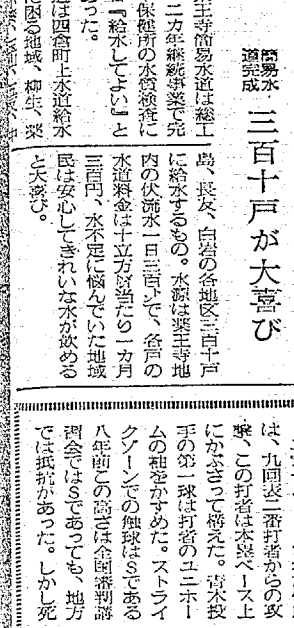 簡易水
道完成
三百十戸が大喜び
王寺簡易水道は総工
ニカ年継続事業で完
保健所の水質検査に
『給水してよい』と
った。
は四倉町上水道給水
に困る地域、柳生、薬
島、長友、白岩の各地区三百十戸
に給水するもの。水源は薬王寺地
内の伏流水一日三百㌧で、各戸の
水道料金は十立方㍍当たり一カ月
三百円、水不足に悩んでいた地域
民は安心してきれいな水が飲める
と大喜び。
は、九回表二番打者からの攻
撃、この打者は本塁ベース上
にかぶさって構えた。青木投
手の第一球は打者のユニホー
ムの袖をかすめた。ストライ
クゾーンでの触球はSである
八年前この高さは全国審判講
習会ではSであっても、地方
では抵抗があった。しかし死